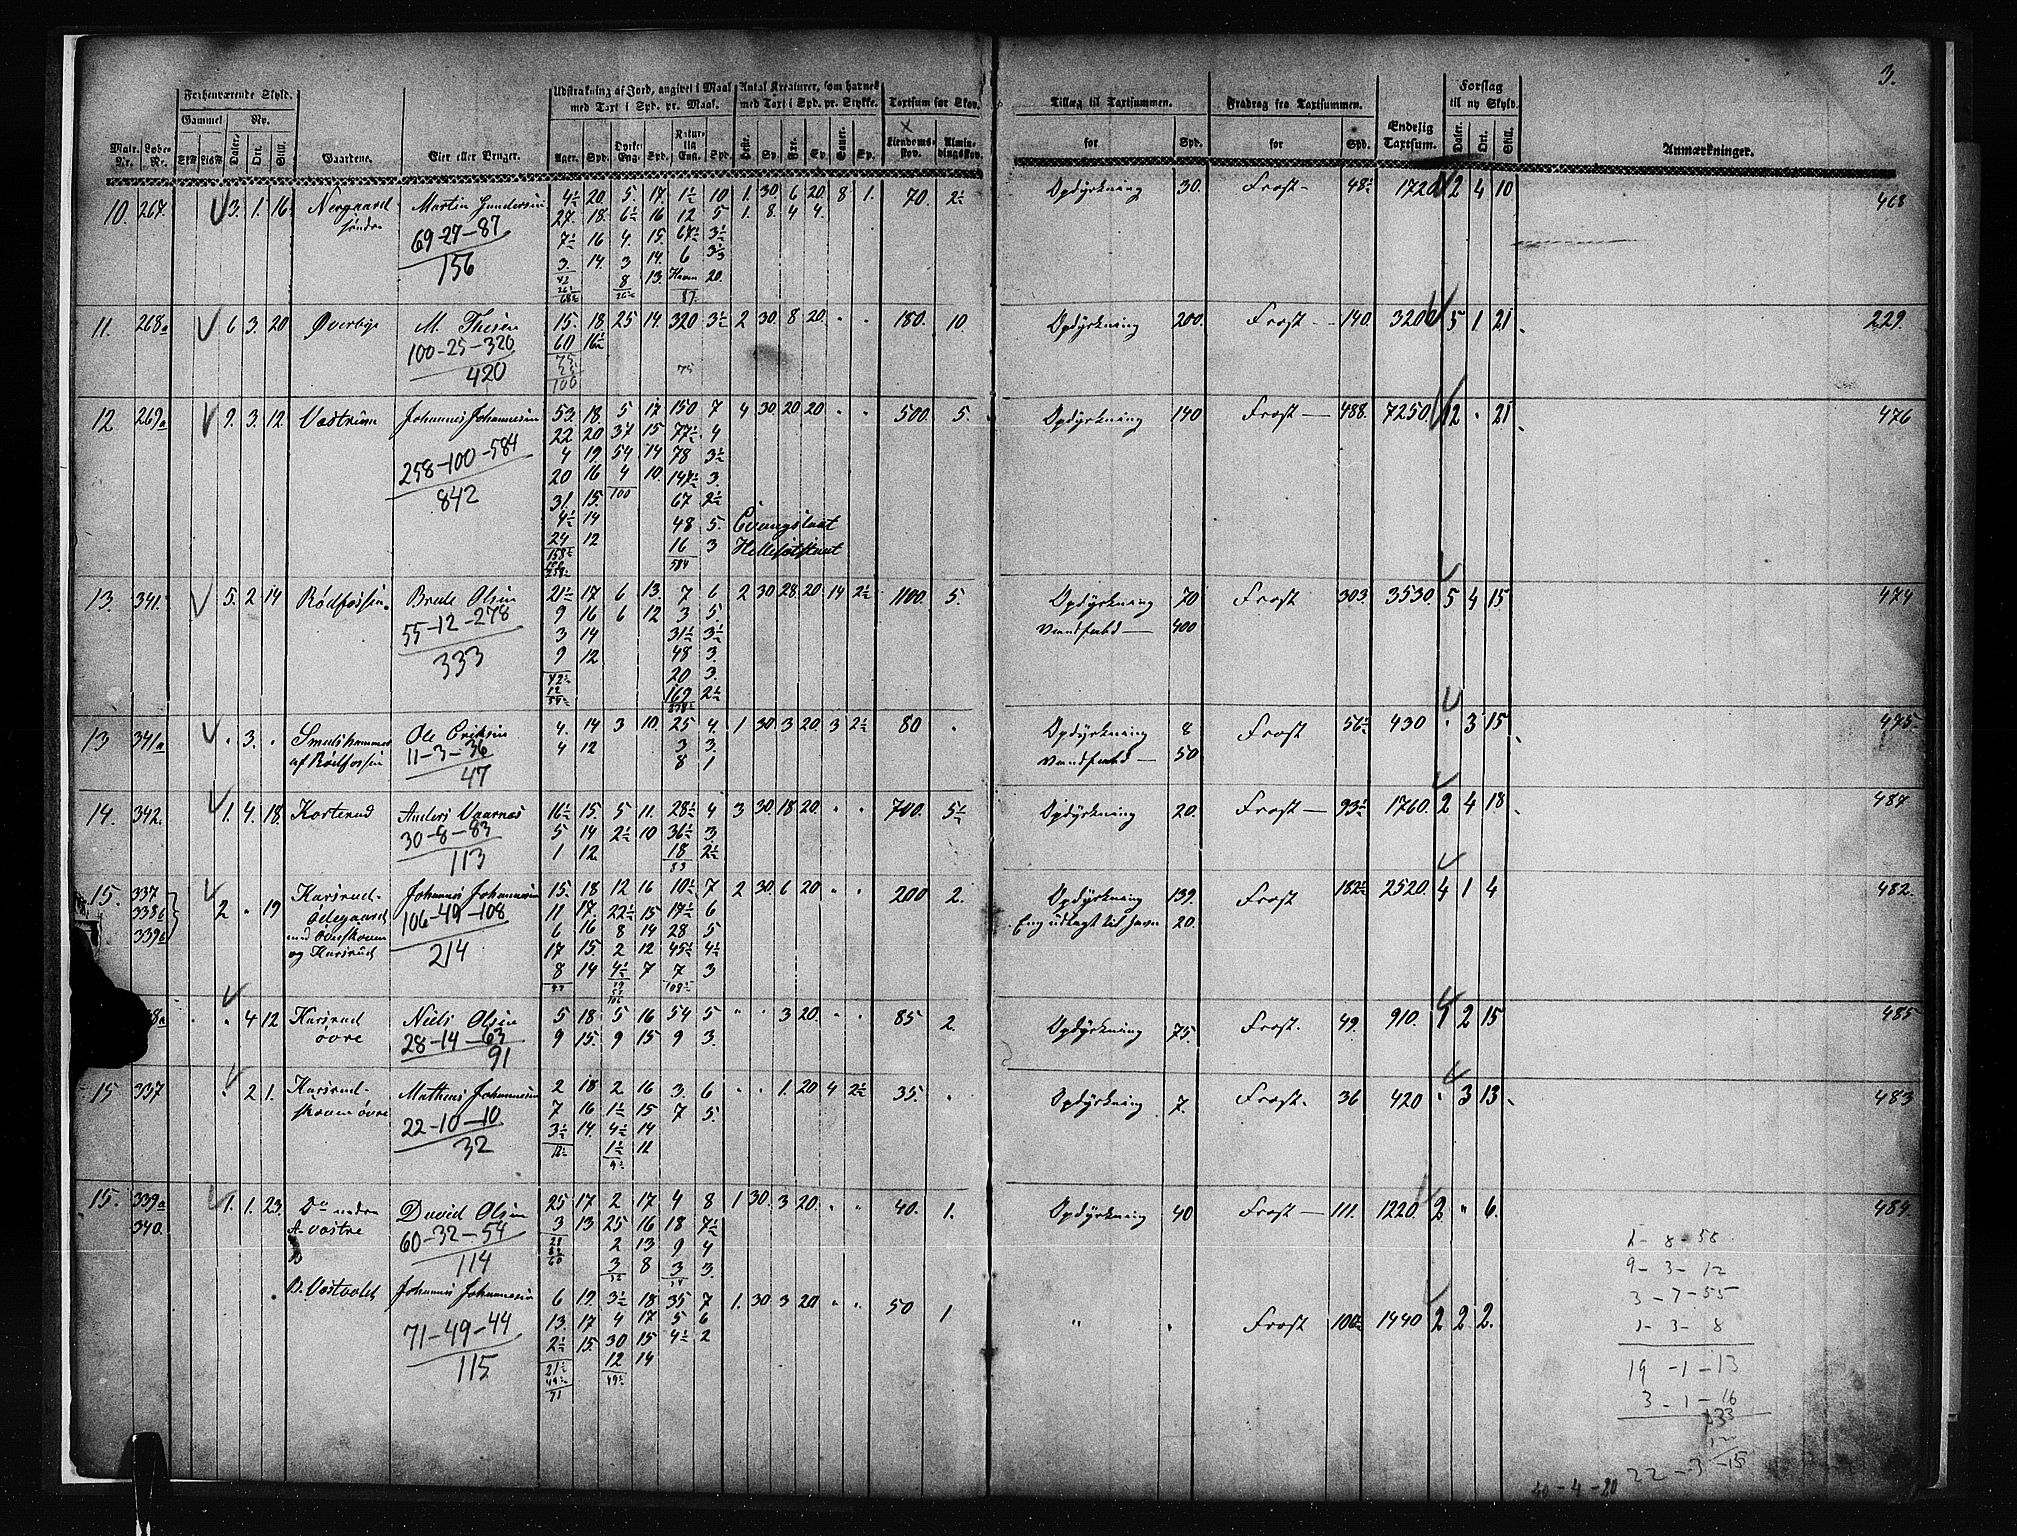 3.
Forhenværende Skyld.
Gammel Ny.
Matr. Nr. Løbe-Nr. Daler Ort. Skill. Gaardene. Eier eller Bruger.
Udstrækning af Jord, angivet i Maal med Taxt i Spd. pr. Maal.
Ager. Spd. Dyrket Eng. Spd. Naturlig Eng. Spd.
Antal Kreaturer, som havnes med Taxt i Spd. pr. Stykke.
Heste. Sp. Sp. Sp.
Taxtsum for Skov.
Eiendomsskov. Almindingsskov.
Tillæg til Taxtsummen. for Spd.
Fradrag fra Taxtsummen. for Spd.
Endelig Taxtsum.
Forslag til ny Skyld. Daler. Ort. Skill.
Anmærkninger.
10. 267. 3. 1. 16 Nergaard Martin Gundersen 4½ 20 5. 17. 1½ 10 1. 30 6 20 8 1. 70. 2½ Opdyrkning 30. Frost 48½ 1720 2 4 10 468
søndre 27. 18. 6½ 16 12 5 1. 8. 4 4.
69-27-87 7½ 16 4. 15. 67½ 3½
156 3. 14. 3 14. 6 3½
8 13. Havn 20.
87.
11. 268a 6 3. 20 Øverbye M. Thesen 15. 18. 25 14. 320 3½ 2 30. 8 20. 180. 10. Opdyrkning 200. Frost 140. 3200 5 1 21 229.
100-25-320 60 16½
420 75
100
12 269a 9. 3. 12 Vestrum Johannes Johannesen 53. 18. 5 17 150 7 4 30 20 20 500. 5. Opdyrkning 140 Frost 488. 7250. 12 21 476
22 20 37 15 77½ 4
258-100-584 4 19. 54 14 78 3½
842 20 16 4 10. 147½ 3.
31. 15. 100 67 2½
4½ 14 48 5.
24 12 16 3
584
13. 341. 5. 2 14 Rødfossen Brede Olsen 21½ 17 6 13. 7 6 2 30 28. 20 14 2½ 1100. 5. Opdyrkning 70 Frost 303. 3530. 5 4 15 474
55-12-278 9 16 6 12 3 5. Vandfald 400
333 3 14 31½ 3½
9 12 48 3.
20 3.
169 2½
13 341a 3. Ole Eriksen 4. 14 3 10. 25 4. 1 30. 3 20. 3 2½ 80 Opdyrkning 8 Frost 56½ 430 3 15 475
af Rødfossen 11-3-36 4 12 3 3. Vandfald 50
47 8 1
14. 342. 1. 4. 18. Korterud Anders Vaarnæs 16½ 15. 5 11. 28½ 4 3 30 18 20. 700. 5½ Opdyrkning 20. Frost 93½ 1760. 2 4 18 487
30-8-83 5 14 2½ 10 36½ 3
113 1 12 18 2½
83
15. 337 338b 339b 2 19 Karsrud- Johannes Johannesen 15. 18 12 16 10½ 7 2 30 6 20 200 2. Opdyrkning 139. Frost 182½ 2520. 4 1 4 482.
Ødegaard 106-49-108 11 17. 22½ 15 17½ 6 Eng udlagt til Havn 20.
6 16 8 14 28 5
og Karsrud 214 17 15. 2 12 45½ 4½
8 14 4½ 7 7 3
4 12 Karsrud Niels Olsen 5 18 5 16 54 5 3 20. 85 2. Opdyrkning 75. Frost. 49. 910. 1 2 15 485
øvre 28-14-63 9 15. 9 15 9 3.
91
15 337 2 1. Karsrud- Mathias Johannesen 2 18 2 16 3. 6 1. 20 4 2½ 35. Opdyrkning 7. Frost. 36 420 3 13. 483
skoven øvre 22-10-10 7 16 1½ 15 7 5.
32 3½ 14. 4½ 14
1½ 12
15. 339a 1. 1. 23. Do nedre David Olsen 25 17 2 17 4 8 1 30. 3 20. 40. 1. Opdyrkning 40 Frost 111. 1220. 2 6. 484.
340. A. vestre 60-32-54 3 13. 25 16 18 7½
114 2 13 9 4
3 8 3 3.
B. Vestvolde Johannes Johannesen 6 19. 3½ 18 35 7 1. 30 3 20 50 1 Frost 100½ 1440 2 2 2.
71-49-44 13. 17 4 17 5 6
115 2½ 15. 30 15 4½ 2
12 14
9-3-12
3-7-55
1-3-8
19-1-13
3-1-16
22-3-15
40-4-20